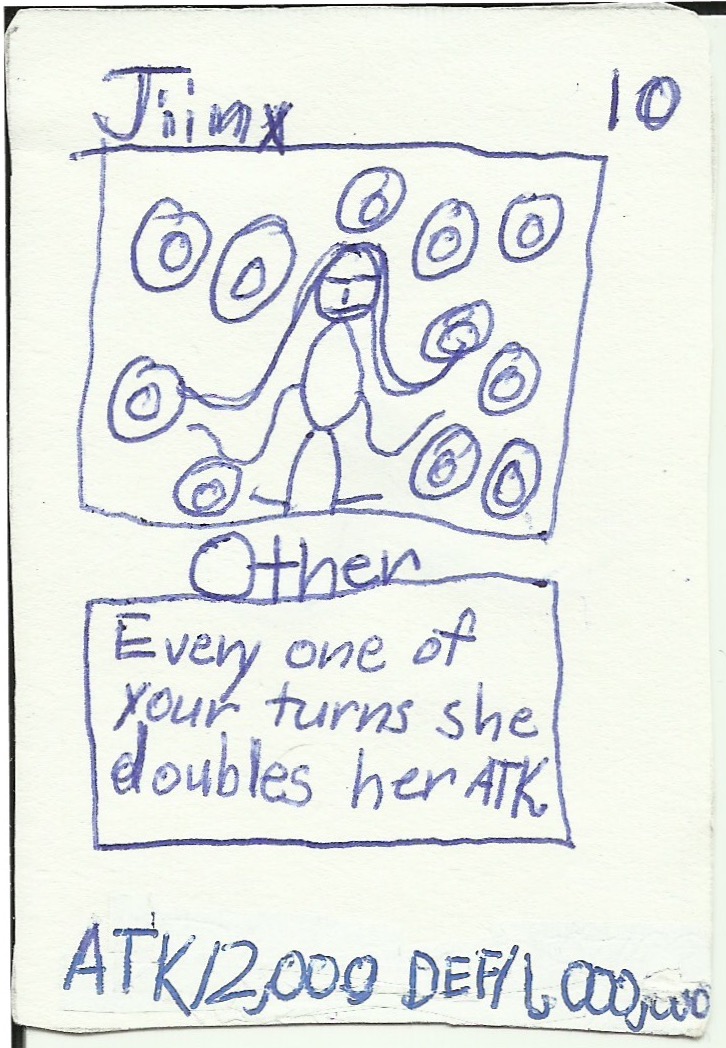 Jiimx 10
Other
Every one of
your turns she
doubles her ATK
ATK/2,000 DEF/1,000,000